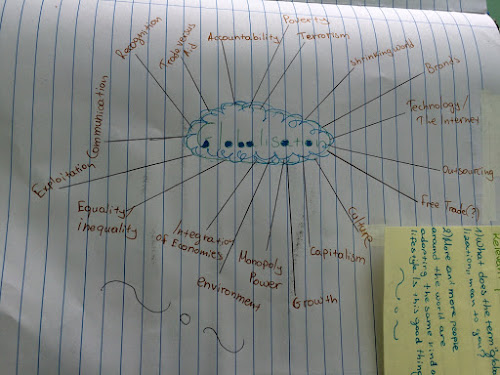 Poverty
Terrorism
Accountability
Trade versus
Aid
Recognition
shrinking world
Brands
Technology/
The Internet
Outsourcing
Free Trade(?)
Culture
Capitalism
Growth
Monopoly
Power
environment
Integration
of Economies
Equality/
inequality
Exploitation
Communication
1) What does the term global
lisation mean to you?
2) More and more people
around the world are
adopting the same kind of
lifestyle. Is this a good thing